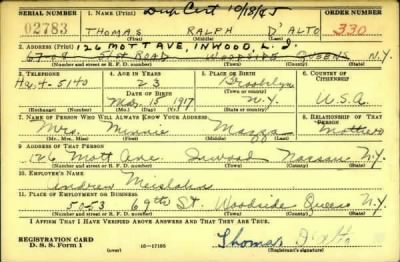 Dup Cert 10/18/45
SERIAL NUMBER
02783
1. NAME (Print)
THOMAS RALPH D'ALTO
(First) (Middle) (Last)
ORDER NUMBER
330
126 MOTT AVE, INWOOD, L. I.
2. ADDRESS (Print)
51st ROAD WOODSIDE QUEENS N.Y.
(Number and street or R. F. D. number) (Town) (County) (State)
3. TELEPHONE
4. AGE IN YEARS
5. PLACE OF BIRTH
6. COUNTRY OF CITIZENSHIP
23
Brooklyn
5140
DATE OF BIRTH
May 15 1917
N.Y.
U.S.A.
(Exchange) (Number)
(Mo.) (Day) (Yr.)
(State or country)
7. NAME OF PERSON WHO WILL ALWAYS KNOW YOUR ADDRESS
8. RELATIONSHIP OF THAT PERSON
Mrs. Minnie Mother
(Mr., Mrs., Miss) (First) (Middle) (Last)
9. ADDRESS OF THAT PERSON
126 Mott Ave Inwood Nassau N.Y.
(Number and street or R. F. D. number) (Town) (County) (State)
10. EMPLOYER'S NAME
Andrew
11. PLACE OF EMPLOYMENT OR BUSINESS
50-53 69th St. Woodside Queens N.Y.
(Number and street or R. F. D. number) (Town) (County) (State)
I AFFIRM THAT I HAVE VERIFIED ABOVE ANSWERS AND THAT THEY ARE TRUE.
REGISTRATION CARD
D. S. S. Form 1
(over)
16-17105
Thomas D'Alto
(Registrant's signature)